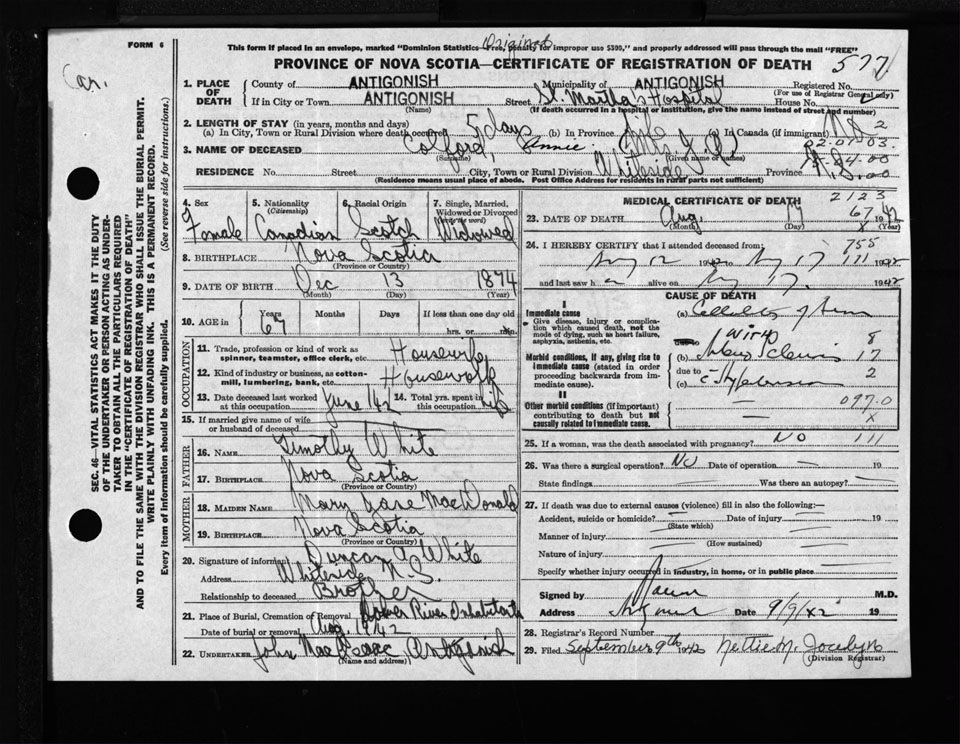 Original
FORM 6 This form if placed in an envelope, marked "Dominion Statistics—Free, penalty for improper use $300," and properly addressed will pass through the mail "FREE"
Car.
PROVINCE OF NOVA SCOTIA—CERTIFICATE OF REGISTRATION OF DEATH 577
1. PLACE OF DEATH County of ANTIGONISH Municipality of ANTIGONISH Registered No.
(For use of Registrar General only)
If in City or Town ANTIGONISH Street St. Martha's Hospital House No.
(Name) (If death occurred in a hospital or institution, give the name instead of street and number)
2. LENGTH OF STAY (in years, months and days)
(a) In City, Town or Rural Division where death occurred 5 days (b) In Province Life (c) In Canada (if immigrant)
3. NAME OF DECEASED Colford, Annie (Mrs J.
(Surname) (Given name or names)
RESIDENCE No. Street City, Town or Rural Division Whiteside Province N.S.
(Residence means usual place of abode. Post Office Address for residents in rural parts not sufficient)
4. Sex 5. Nationality (Citizenship) 6. Racial Origin 7. Single, Married, Widowed or Divorced
Female Canadian Scotch Widowed
8. BIRTHPLACE Nova Scotia
(Province or Country)
9. DATE OF BIRTH Dec 13 1874
(Month) (Day) (Year)
10. AGE in Years Months Days If less than one day old
67 hrs. or min.
OCCUPATION
11. Trade, profession or kind of work as spinner, teamster, office clerk, etc. Housewife
12. Kind of industry or business, as cotton-mill, lumbering, bank, etc. Housework
13. Date deceased last worked at this occupation June 1942 14. Total yrs. spent in this occupation Life
15. If married give name of wife or husband of deceased
FATHER
16. NAME Timothy White
17. BIRTHPLACE Nova Scotia
(Province or Country)
MOTHER
18. MAIDEN NAME Mary Jane MacDonald
19. BIRTHPLACE Nova Scotia
(Province or Country)
20. Signature of informant Duncan A White
Address Whiteside N.S.
Relationship to deceased Brother
21. Place of Burial, Cremation or Removal Lower River Inhabitants
Date of burial or removal Aug. 1942
22. UNDERTAKER John MacIsaac Antigonish
(Name and address)
MEDICAL CERTIFICATE OF DEATH 2123
23. DATE OF DEATH Aug 17 1942
(Month) (Day) (Year)
24. I HEREBY CERTIFY that I attended deceased from: 755
Aug 12 to Aug 17 1942
and last saw h alive on Aug 17 1942
CAUSE OF DEATH
I
Immediate cause (a) Cellulitis of
Give disease, injury or complication which caused death, not the mode of dying, such as heart failure, asphyxia, asthenia, etc.
due to WITH 8
Morbid conditions, if any, giving rise to immediate cause (stated in order proceeding backwards from immediate cause). (b) 17
due to 2
(c)
II
Other morbid conditions (if important) contributing to death but not causally related to immediate cause. 097.0
X
25. If a woman, was the death associated with pregnancy? NO 111
26. Was there a surgical operation? NO Date of operation — 19
State findings Was there an autopsy? —
27. If death was due to external causes (violence) fill in also the following:—
Accident, suicide or homicide? Date of injury 19
(State which)
Manner of injury
(How sustained)
Nature of injury
Specify whether injury occurred in industry, in home, or in public place
Signed by M.D.
Address Date 9/9/42 19
28. Registrar's Record Number
29. Filed September 9th 1942 Nettie M. Jocelyn
(Division Registrar)
SEC. 46—VITAL STATISTICS ACT MAKES IT THE DUTY
OF THE UNDERTAKER OR PERSON ACTING AS UNDER-
TAKER TO OBTAIN ALL THE PARTICULARS REQUIRED
IN THE "CERTIFICATE OF REGISTRATION OF DEATH"
AND TO FILE THE SAME WITH THE DIVISION REGISTRAR WHO SHALL ISSUE THE BURIAL PERMIT.
WRITE PLAINLY WITH UNFADING INK. THIS IS A PERMANENT RECORD.
Every item of information should be carefully supplied. (See reverse side for instructions.)